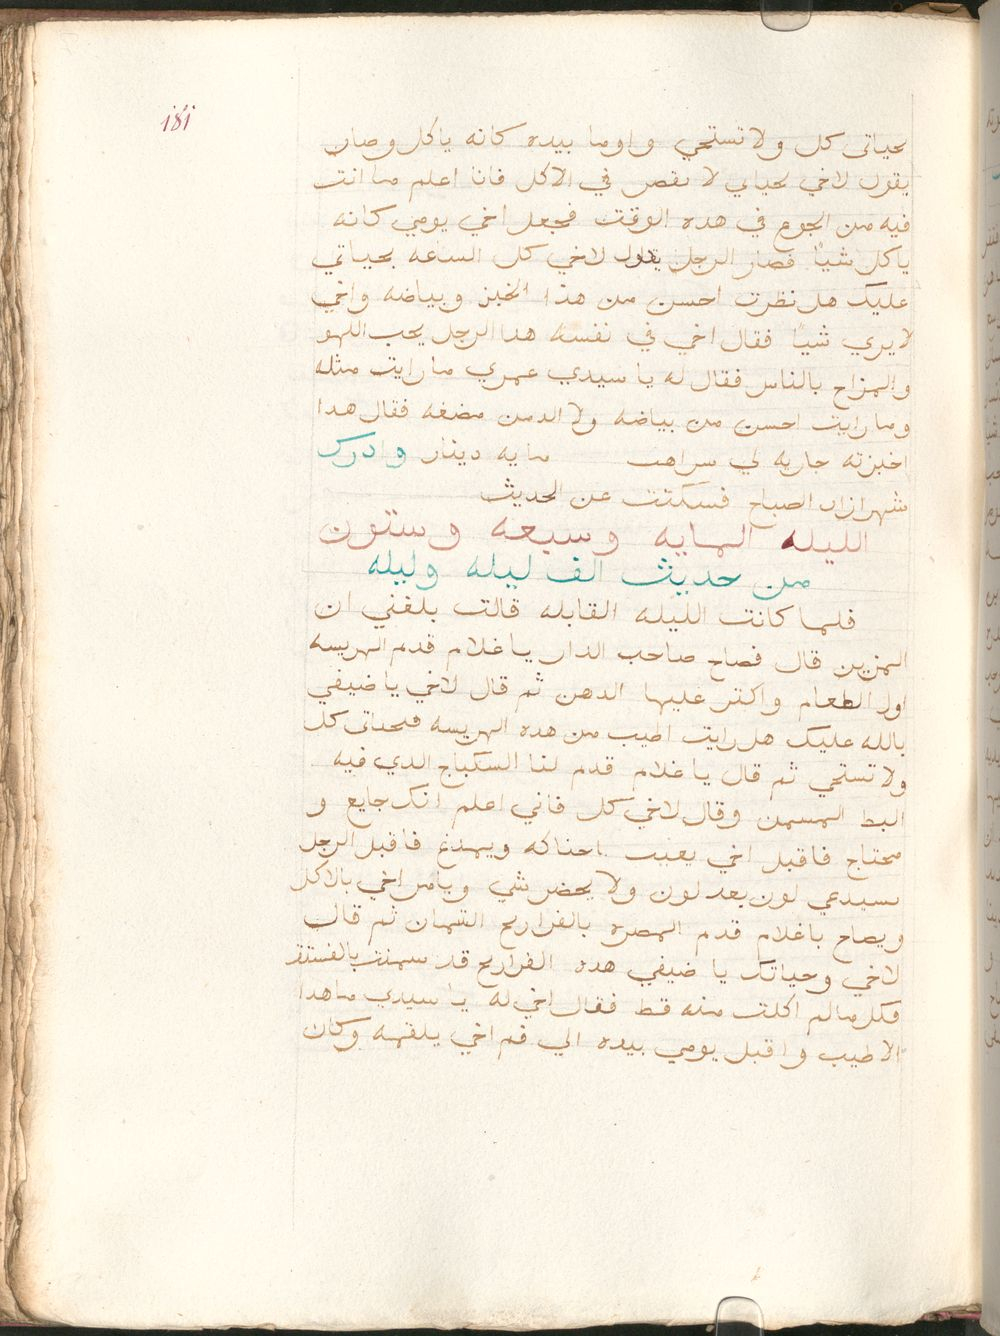 ١٨١
بحياتي كل ولا تستحي واوما بيده كانه ياكل وصار
يقول لاخي بحياتي لا تقصر في الاكل فانا اعلم ما انت
فيه من الجوع في هده الوقت فجعل اخي يومي كانه
ياكل شياً فصار الرجل يقول لاخي كل الساعه بحياتي
عليك هل نظرت احسن من هذا الخبز وبياضه واخي
لا يري شياً فقال اخي في نفسه هدا الرجل يحب اللهو
والمزاح بالناس فقال له يا سيدي عمري ما رايت مثله
وما رايت احسن من بياضه ولا الد من مضغه فقال هدا
اخبزته جاريه لي سراهت مايه دينار وادرك
شهرازاد الصباح فسكتت عن الحديث
الليله المايه وسبعه وستون
من حديث الف ليله وليله
فلما كانت الليله القابله قالت بلغني ان
المزين قال فصاح صاحب الدار يا غلام قدم الهريسه
اول الطعام واكتر عليها الدهن ثم قال لاخي يا ضيفي
بالله عليك هل رايت اطيب من هده الهريسه فحياتي كل
ولا تستحي ثم قال يا غلام قدم لنا السكباج الدي فيه
البط المسمن وقال لاخي كل فاني اعلم انك جايع و
محتاج فاقبل اخي احناكه ويمدغ فاقبل الرجل
يسيدعي لون بعد لون ولا يحضر شي ويامر اخي بالاكل
ويصاح ياغلام قدم المصره بالفراريج السمان ثم قال
لاخي وحياتك يا ضيفي هده الفراريح قد سمنت بالفستق
فكل ما لم اكلت منه قط فقال اخي له يا سيدي ما هدا
الا طيب واقبل يومي بيده الي فم اخي يلقمه وكان